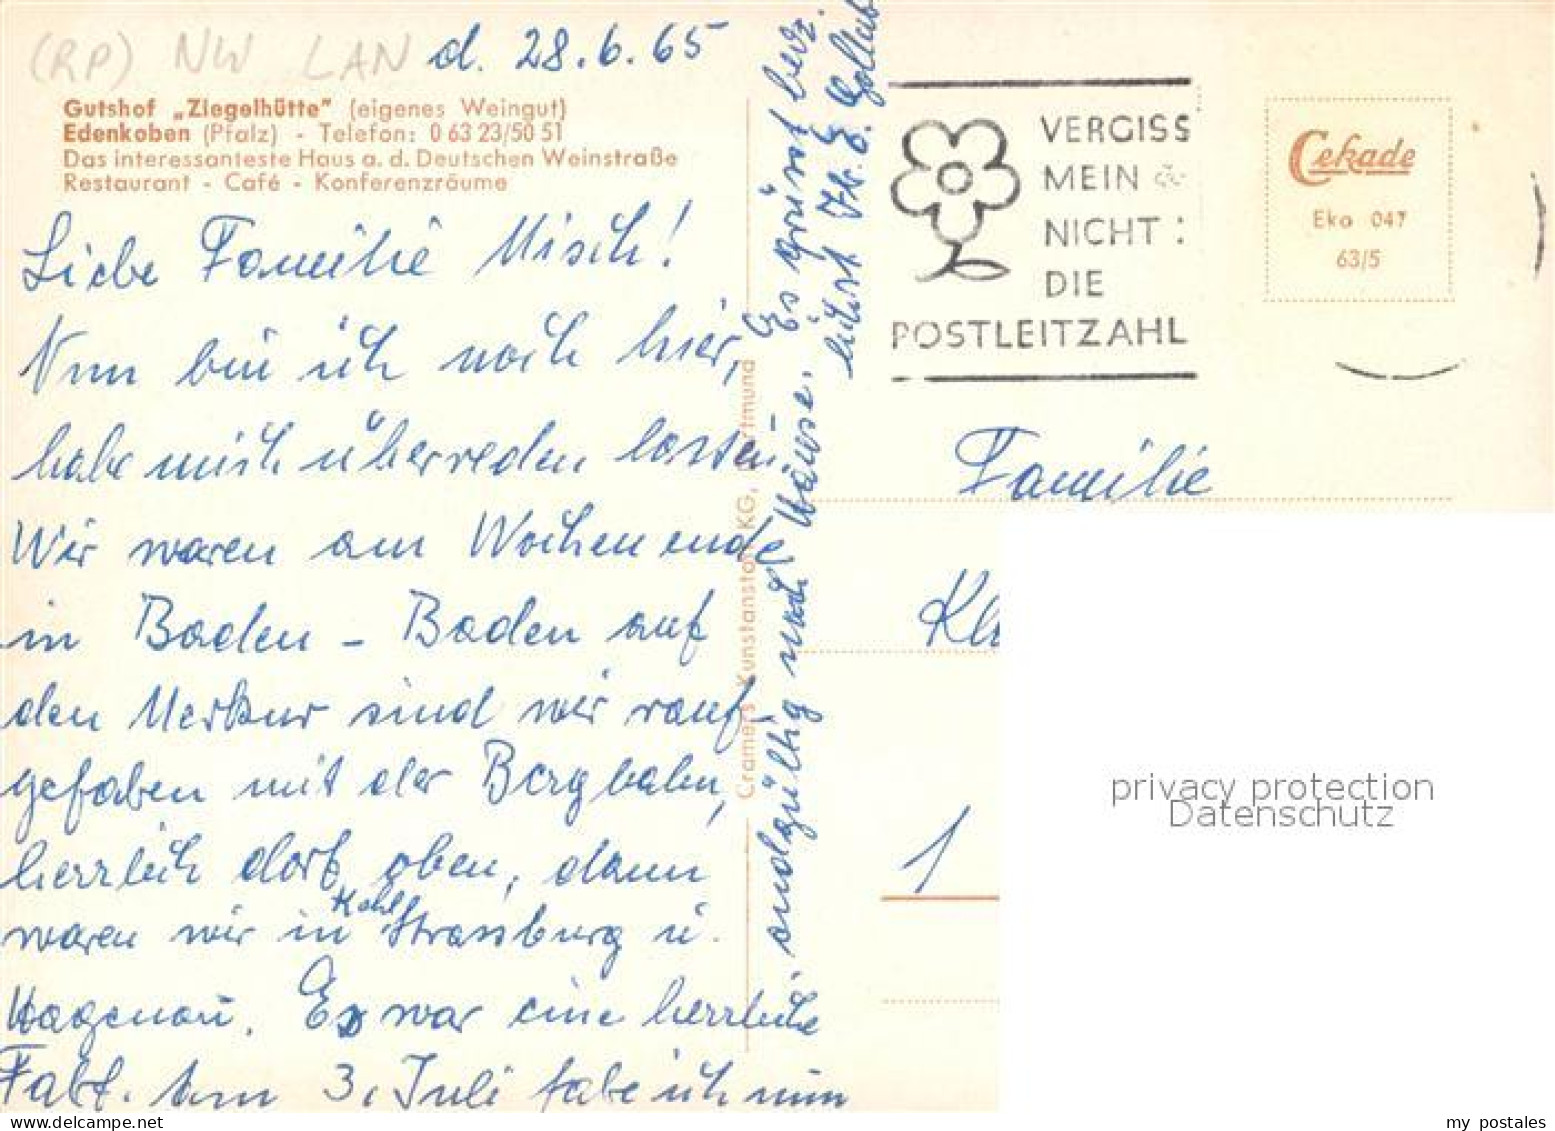 (RP) NW LAN
d. 28.6.65
Gutshof „Ziegelhütte" (eigenes Weingut)
Edenkoben (Pfalz) - Telefon: 0 63 23/50 51
Das interessanteste Haus a. d. Deutschen Weinstraße
Restaurant - Café - Konferenzräume
Liebe Familie Misch!
Nun bin ich noch hier,
habe mich überreden lassen.
Wir waren am Wochenende
in Baden-Baden auf
den Merkur sind wir rauf-
gefahren mit der Bergbahn,
herrlich dort oben, dann
waren wir in Kehl, Strassburg u.
Hagenau. Es war eine herrliche
Fahrt. Am 3. Juli fahre ich nun
endgültig nach Hause.
Es grüsst herz
lichst Ihr E.
Cramers Kunstanstalt KG, Dortmund
VERGISS
MEIN
NICHT:
DIE
POSTLEITZAHL
Cekade
Eka 047
63/5
Familie
1
privacy protection
Datenschutz
my postales